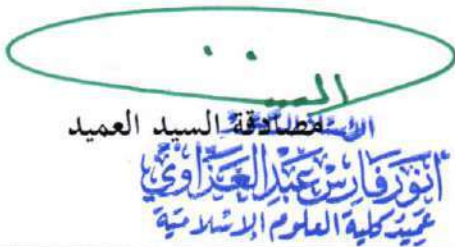 مصادقة السيد العميد
أنور فارس عبد العزاوي
عميد كلية العلوم الإسلامية